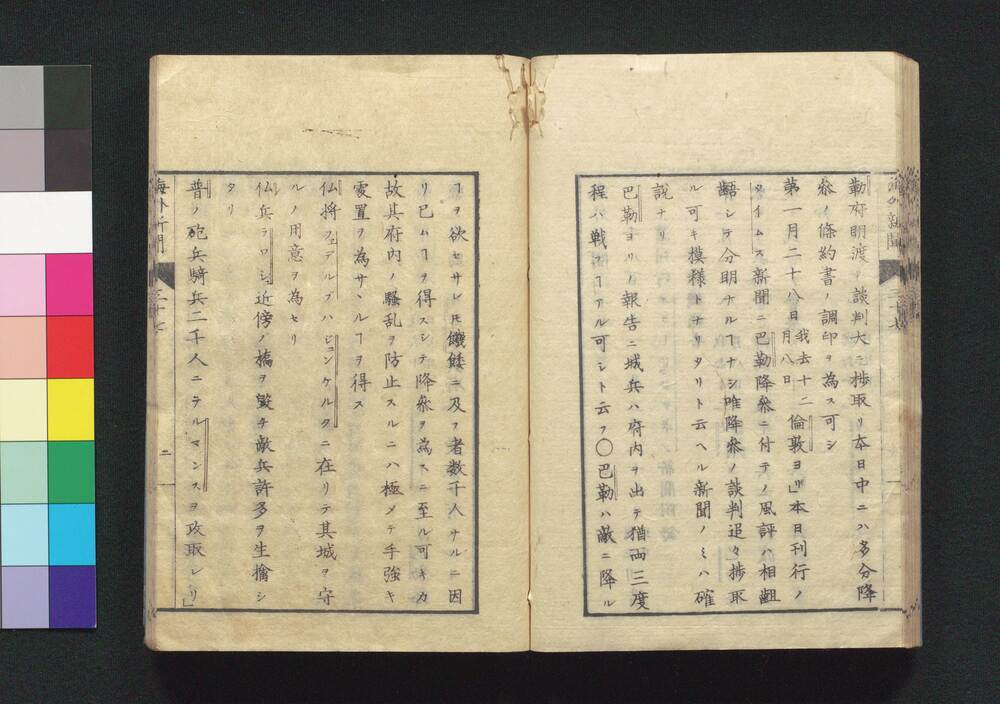 勒府明渡ノ談判大ニ捗取リ本日中ニハ多分降
参ノ條約書ノ調印ヲ為ス可シ
第一月二十八日我去十二月八日倫敦ヨリ」本日刊行ノ
タイムス新聞ニ巴勒降参ニ付テノ風評ハ相齟
齬シテ分明ナルヿナシ唯降参ノ談判追々捗取
ル可キ模様トナリタリト云ヘル新聞ノミハ確
説ナリ
巴勒ヨリノ報告ニ城兵ハ府内ヲ出テ猶両三度
程ハ戦フヿアル可シト云フ〇巴勒ハ敵ニ降ル
ヿヲ欲セサレ𪜈饑餧ニ及フ者数千人ナルニ因
リ已ムヿヲ得スシテ降参ヲ為スニ至ル可キカ
故其府内ノ騒乱ヲ防止スルニハ極メテ手強キ
處置ヲ為サヽルヿヲ得ス
仏将フェデルブハヂュンケルクニ在リテ其城ヲ守
ルノ用意ヲ為セリ
仏兵テロシ近傍ノ橋ヲ毀チ敵兵許多ヲ生擒シ
タリ
普ノ砲兵騎兵二千人ニテルマンスヲ攻取レリ」
海外新聞
三十七
二